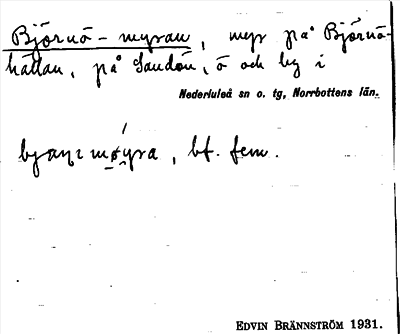 Björnö-myran, myr på Björnö-
hällan, på Sandön, ö och by i
Nederluleå sn o. tg, Norrbottens län.
bf. fem.
EDVIN BRÄNNSTRÖM 1931.